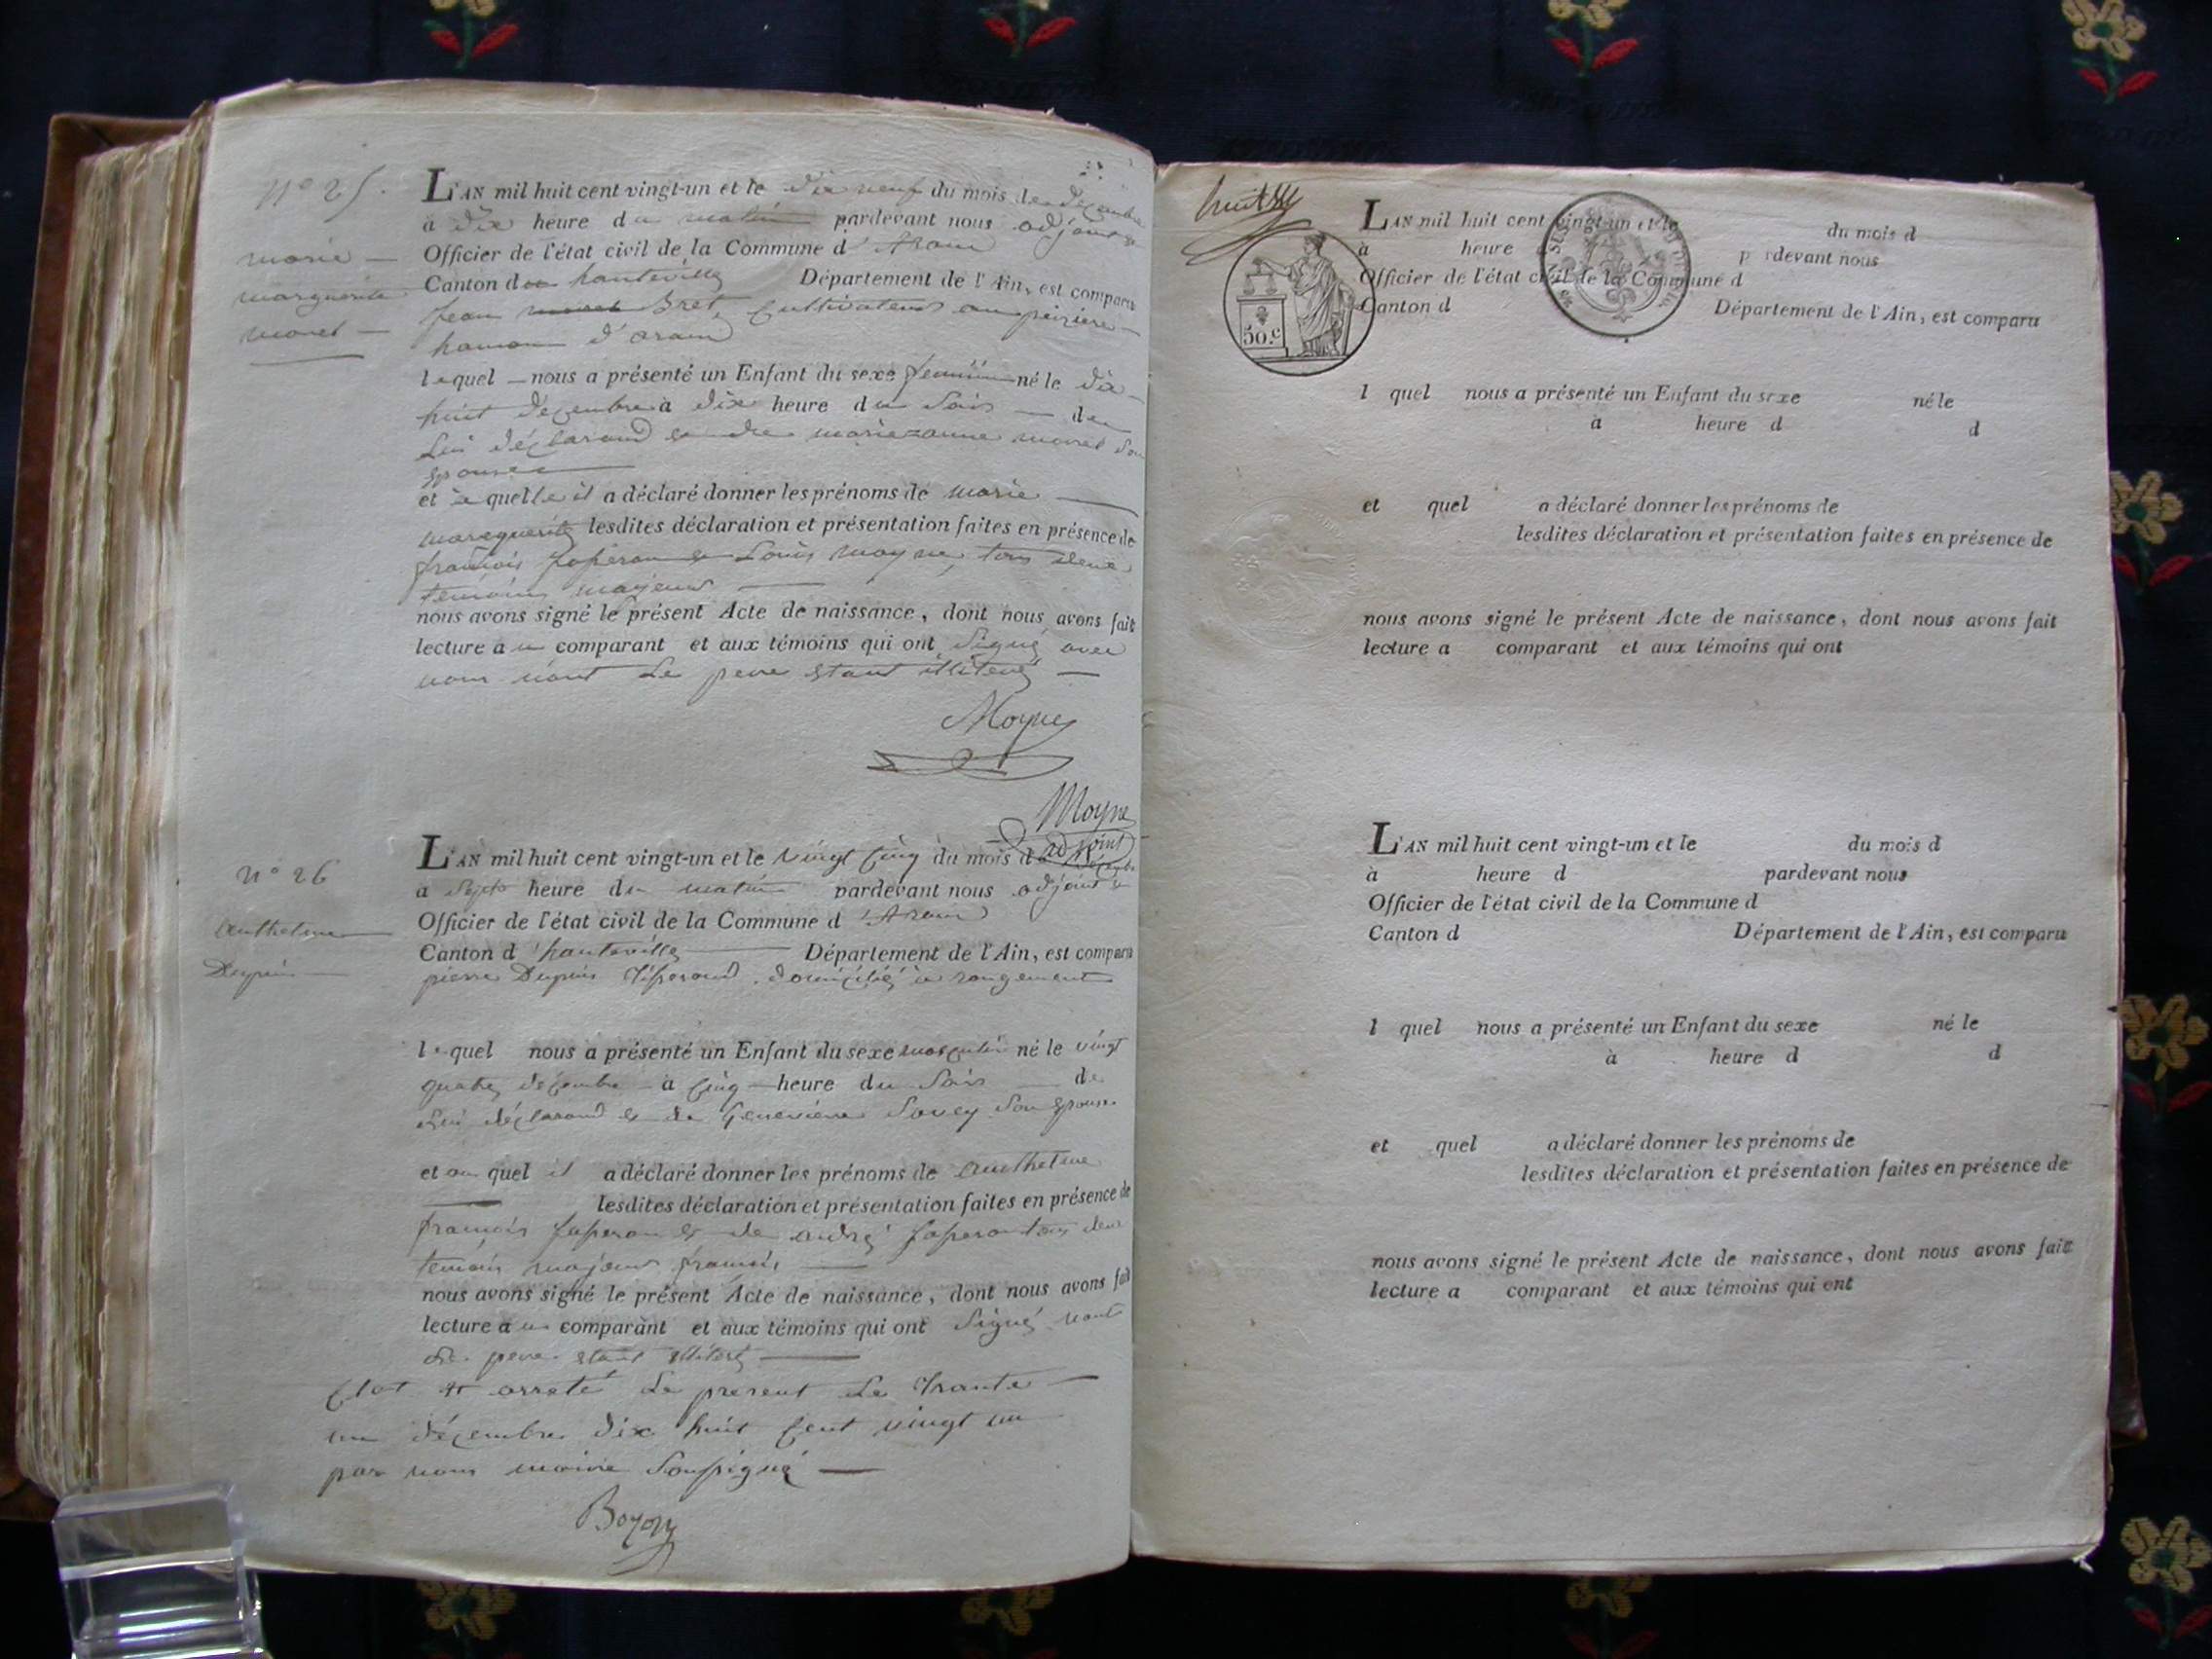 N° 25.
marie
marguerite
moret
L'AN mil huit cent vingt-un et le dix neuf du mois de décembre
à dix heure du matin pardevant nous adjoint
Officier de l'état civil de la Commune d'Aran
Canton de hauteville Département de l'Ain, est comparu
Jean Bret, Cultivateur
hamau d'aran
lequel nous a présenté un Enfant du sexe feminin né le dix
huit décembre à dix heure du soir de
lui déclarand et de marie anne moret son
epouse
et a quelle il a déclaré donner les prénoms de marie
marguerite lesdites déclaration et présentation faites en présence de
françois et Louis moyne, tous deux
temoins majeurs
nous avons signé le présent Acte de naissance, dont nous avons fait
lecture au comparant et aux témoins qui ont signé avec
nous le pere etant illiteré
Moyne
Moyne
adjoint
N° 26
Anthelme
Dupuis
L'AN mil huit cent vingt-un et le vingt cinq du mois de décembre
à sept heure du matin pardevant nous adjoint
Officier de l'état civil de la Commune d'Aran
Canton d'hauteville Département de l'Ain, est comparu
pierre Dupuis Tisserand domicilié à rougemont
lequel nous a présenté un Enfant du sexe masculin né le vingt
quatre décembre à cinq heure du soir de
lui déclarand et de Genevieve Savey son epouse
et au quel il a déclaré donner les prénoms de Anthelme
lesdites déclaration et présentation faites en présence de
françois et de andré tous deux
temoin majeur
nous avons signé le présent Acte de naissance, dont nous avons fait
lecture au comparant et aux témoins qui ont signé
le pere etant illiteré
Clot et arreté le present le trante
un décembre dix huit cent vingt un
par nous maire soussigné
Boyon
50.c
L'AN mil huit cent vingt-un et le du mois d
à heure pardevant nous
Officier de l'état civil de la Commune d
Canton d Département de l'Ain, est comparu
l quel nous a présenté un Enfant du sexe né le
à heure d d
et quel a déclaré donner les prénoms de
lesdites déclaration et présentation faites en présence de
nous avons signé le présent Acte de naissance, dont nous avons fait
lecture a comparant et aux témoins qui ont
L'AN mil huit cent vingt-un et le du mois d
à heure d pardevant nous
Officier de l'état civil de la Commune d
Canton d Département de l'Ain, est comparu
l quel nous a présenté un Enfant du sexe né le
à heure d d
et quel a déclaré donner les prénoms de
lesdites déclaration et présentation faites en présence de
nous avons signé le présent Acte de naissance, dont nous avons fait
lecture a comparant et aux témoins qui ont